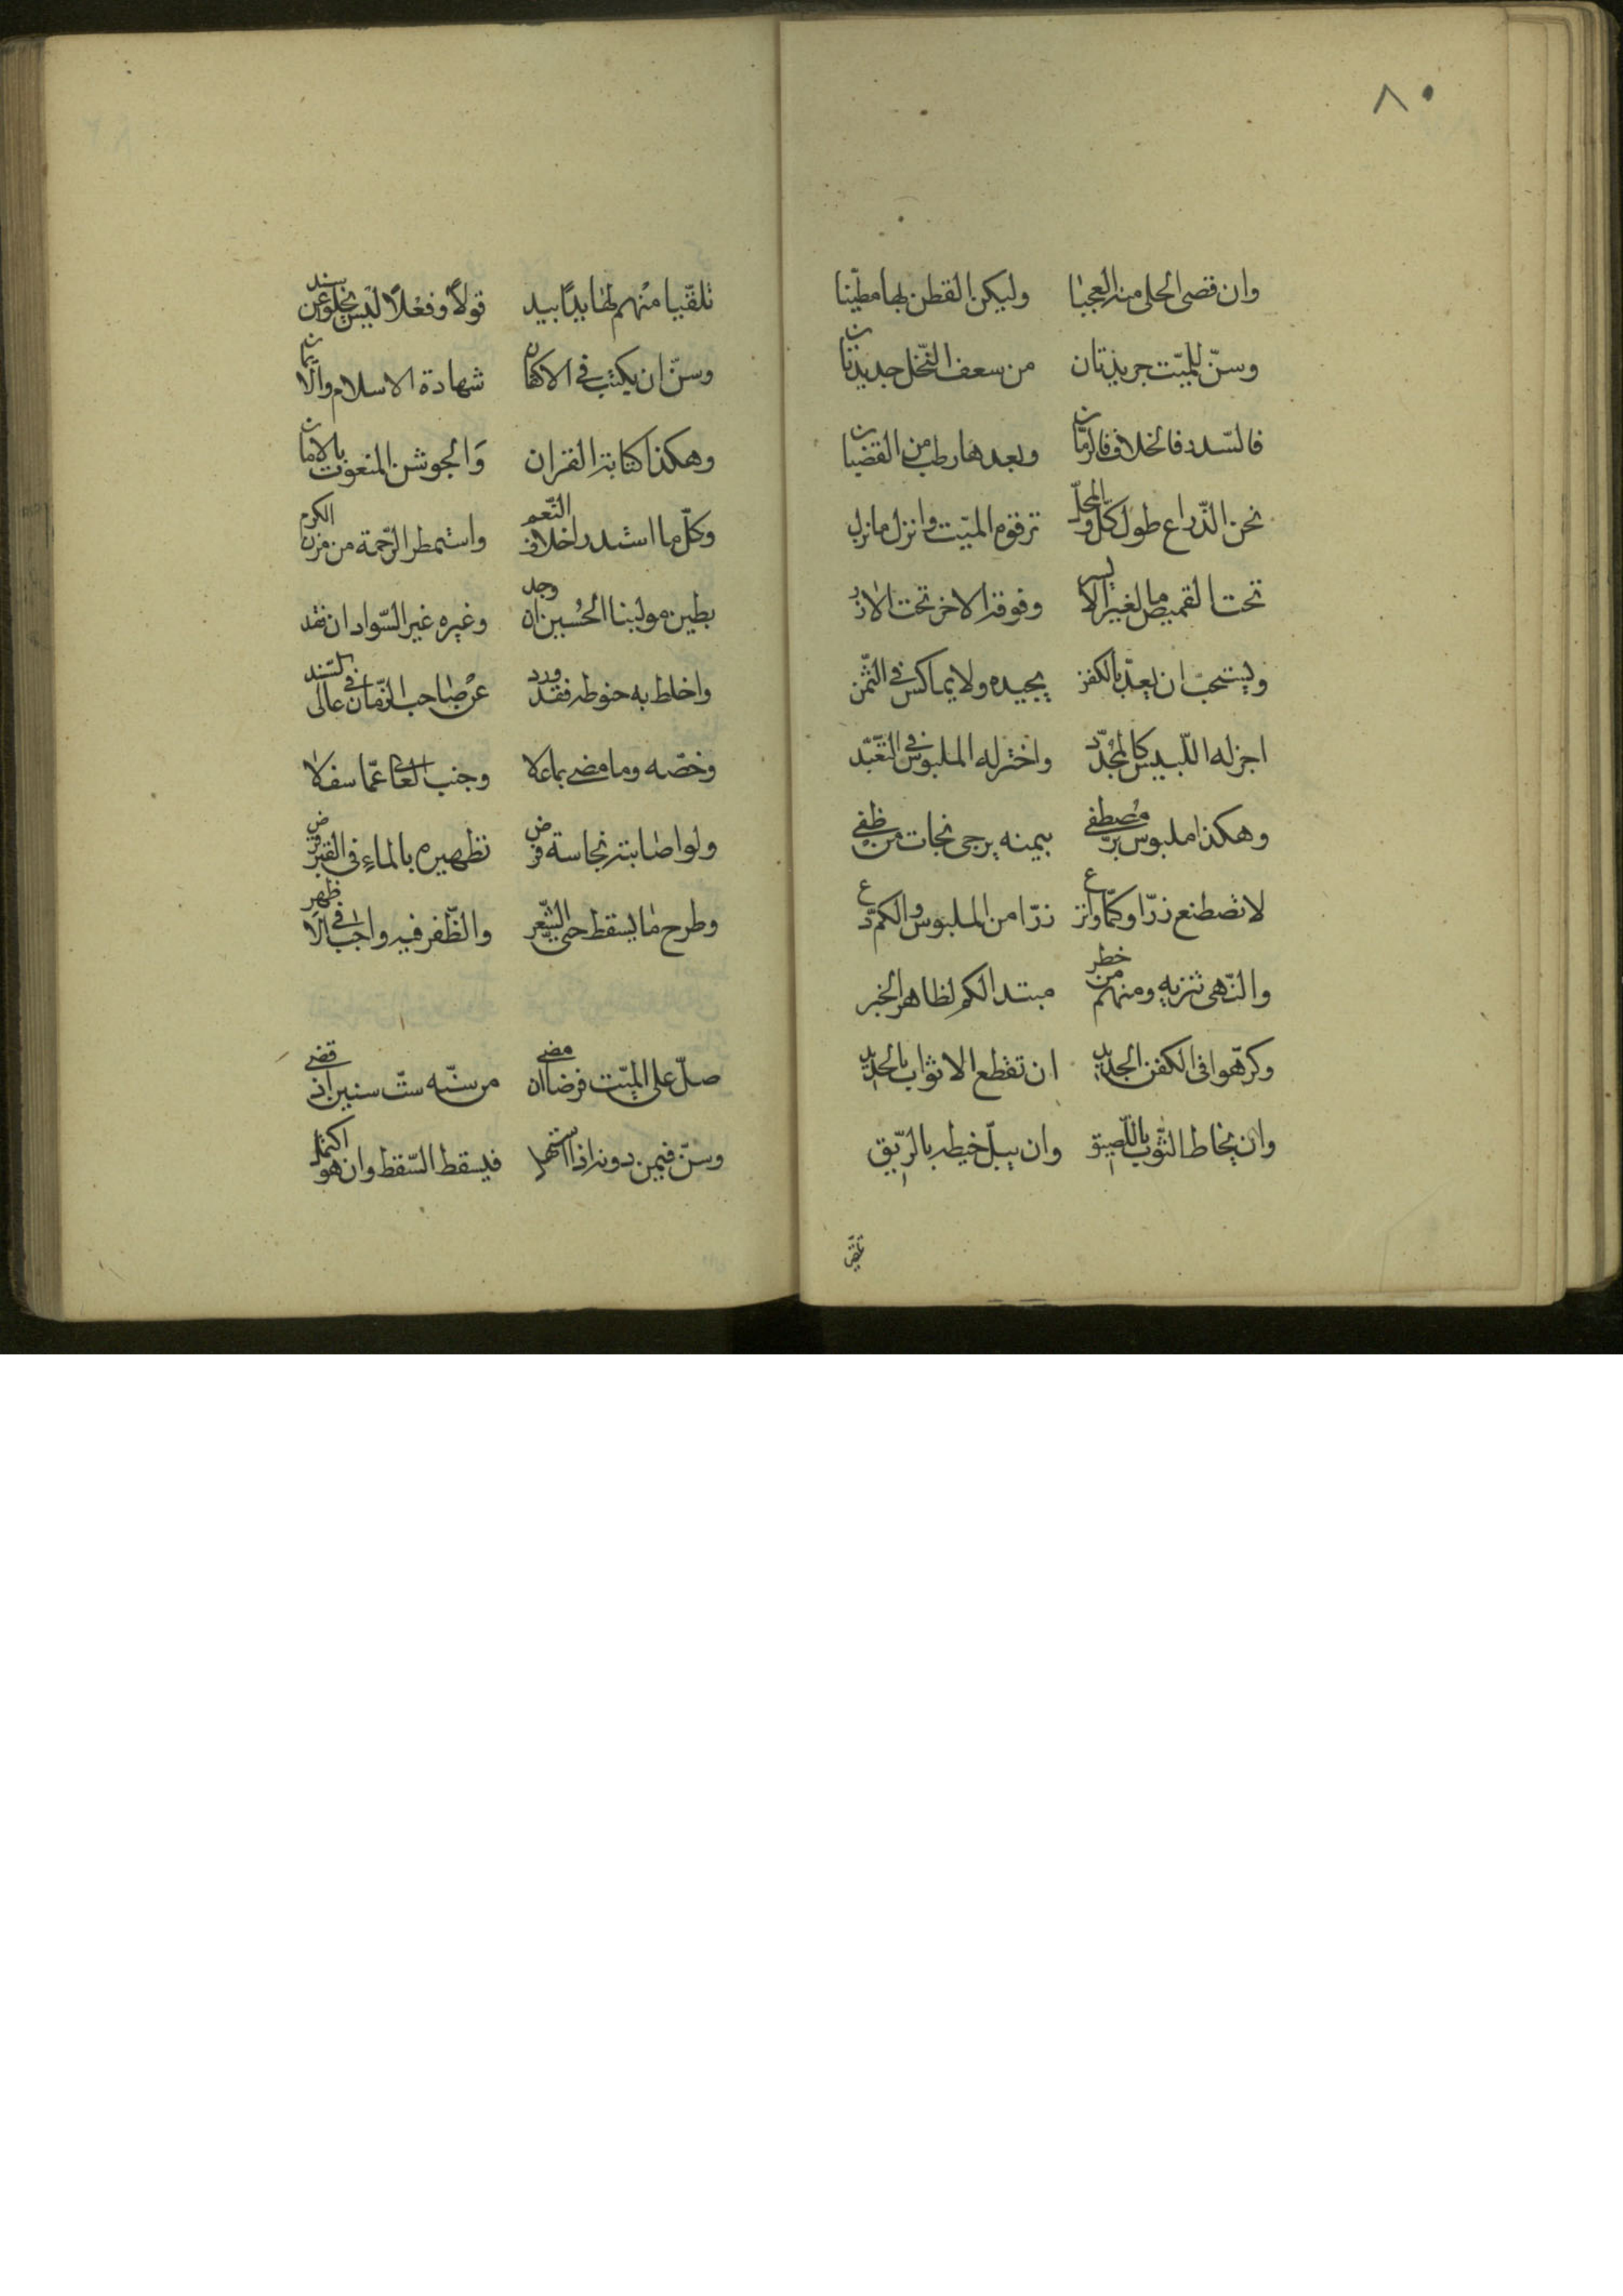 ٨٠
وان قصى الحلى منه العجبا وليكن القطن بها مطيّنا
وسنّ للميّت جريدتان من سعف النّخل جديدتان
فالسّدر فالخلاف فالرمّان وبعدها رطب من القضبان
نحن الذّراع طول كلّ و ترقوم الميّت وانزل ما نزل
تحت القميص ما لغير الايسر وفوقه الاخر تحت الازر
ويستحبّ ان يعدّ بالكفن يجيده ولا يماكس فى الثّمن
اجز له اللّبيس كالمجدّد واختر له الملبوس فى التّعبّد
وهكذا ملبوس برّ مصطفى بيمنه يرجى نجات من ظفى
لا تصطنع زرّا وكمّا وانزع زرّا من الملبوس والكم دع
والنّهى تنزيه ومنهم من خطر مبتدا لكم لظاهر الخبر
وكرّهوا فى الكفن الجديد ان تقطع الاثواب بالحديد
وان يخاط الثّوب باللّصيق وان يبلّ خيطه بالرّيق
تلقّيا منهم لها يدًا بيد قولاً وفعلاً ليس يخلو عن سند
وسنّ ان يكتب فى الاكفان شهادة الاسلام والايمان
وهكذا كتابة القران والجوشن المنعوت بالامان
وكلّ ما استدر اخلاف النّعم واستمطر الرّحمة من مزن الكرم
بطين مولينا الحسين ان وجد وغيره غير السّواد ان فقد
واخلط به حنوطه فقد ورد عن صاحب الزّمان فى عالى السّند
وخصّه وما مضى بما علا وجنب العالى عمّا سفلا
ولو اصابته نجاسة قرض تطهيره بالماء فى القبر فرض
وطرح ما يسقط حتى الشّعر والظّفر فيه واجب فى الاظهر
صلّ على الميّت فرضا ان مضى من سنّه ستّ سنين اذ قضى
وسنّ فيمن دونه اذا استهل فيسقط السّقط وان هو اكتمل